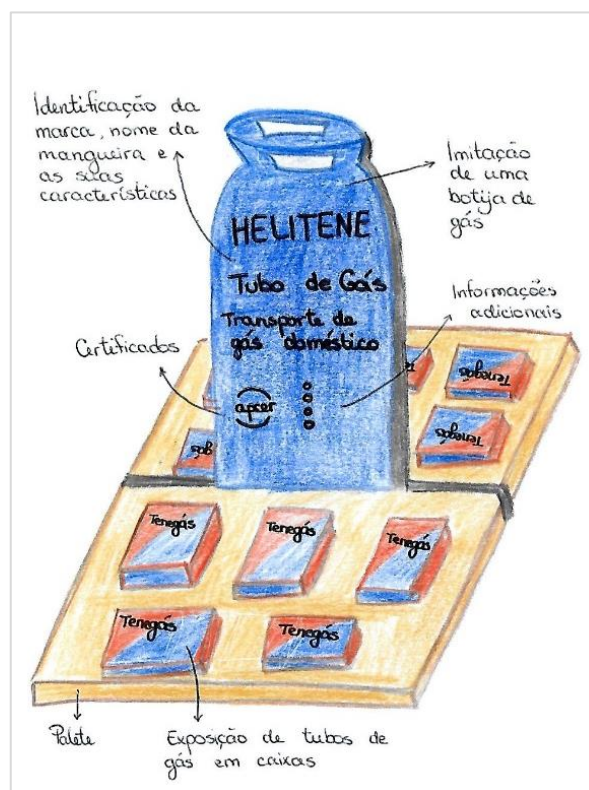 Identificação da
marca, nome da
mangueira e
as suas
características
Imitação
de uma
botija de
gás
HELITENE
Tubo de Gás
Transporte de
gás doméstico
Informações
adicionais
Certificados
apcer
Tenegás
Tenegás
gás
Tenegás
Tenegás
Tenegás
Tenegás
Tenegás
Palete
Exposição de tubos de
gás em caixas